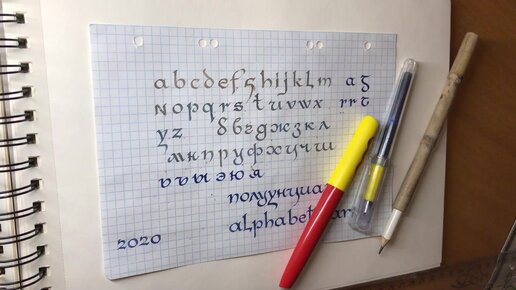 abcdefghijklm ag
nopqrstuvwx rrt
yz бвгджзкл
мнпруфхцчш
ъьыэюя
полуунциал
alphabet
2020